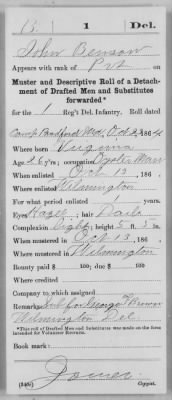 B. 1 Del.
John Benson
Appears with rank of Pvt on
Muster and Descriptive Roll of a Detach-
ment of Drafted Men and Substitutes
forwarded*
for the 1 Reg't Del. Infantry. Roll dated
Camp Bradford Md, Oct 24, 1864
Where born Virginia
Age 26 y'rs; occupation Oyster Man
When enlisted Oct 13, 186
Where enlisted Wilmington
For what period enlisted 1 years.
Eyes Hazel; hair Dark
Complexion Light; height 5 ft. 5 in.
When mustered in Oct 13, 186
Where mustered in Wilmington
Bounty paid $ 100; due $ 100
Where credited
Company to which assigned
Remarks: Sub for George Brown
Wilmington Del
*This roll of Drafted Men and Substitutes was made on the form
intended for Volunteer Recruits.
Book mark:
Jones
Copyist.